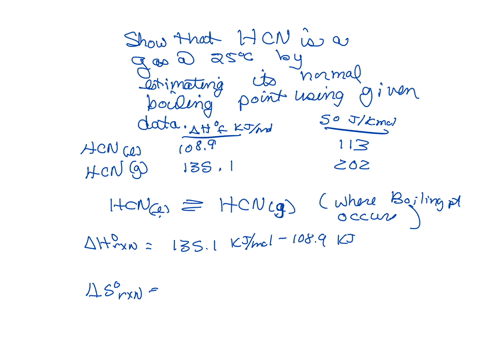 Show that HCN is a
gas @ 25°C by
estimating its normal
boiling point using given
data. ΔH°f KJ/mol S° J/Kmol
HCN(l) 108.9 113
HCN(g) 135.1 202
HCN(l) ⇌ HCN(g) (where Boiling pt
occurs)
ΔH°rxN = 135.1 KJ/mol - 108.9 KJ
ΔS°rxN =